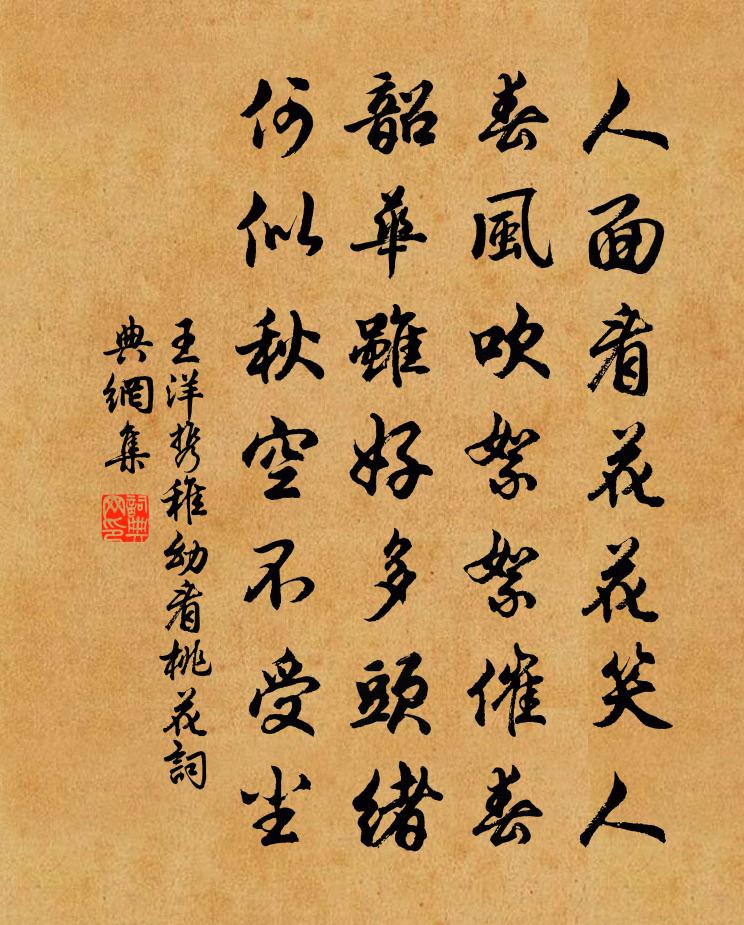 人面看花花笑人
春風吹絮絮催春
韶華雖好多頭緒
何似秋空不受尘
王洋携稚幼看桃花詞
典網集
詞典
网印